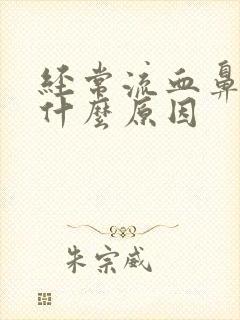 经常流血鼻
什麼原因
朱宗威